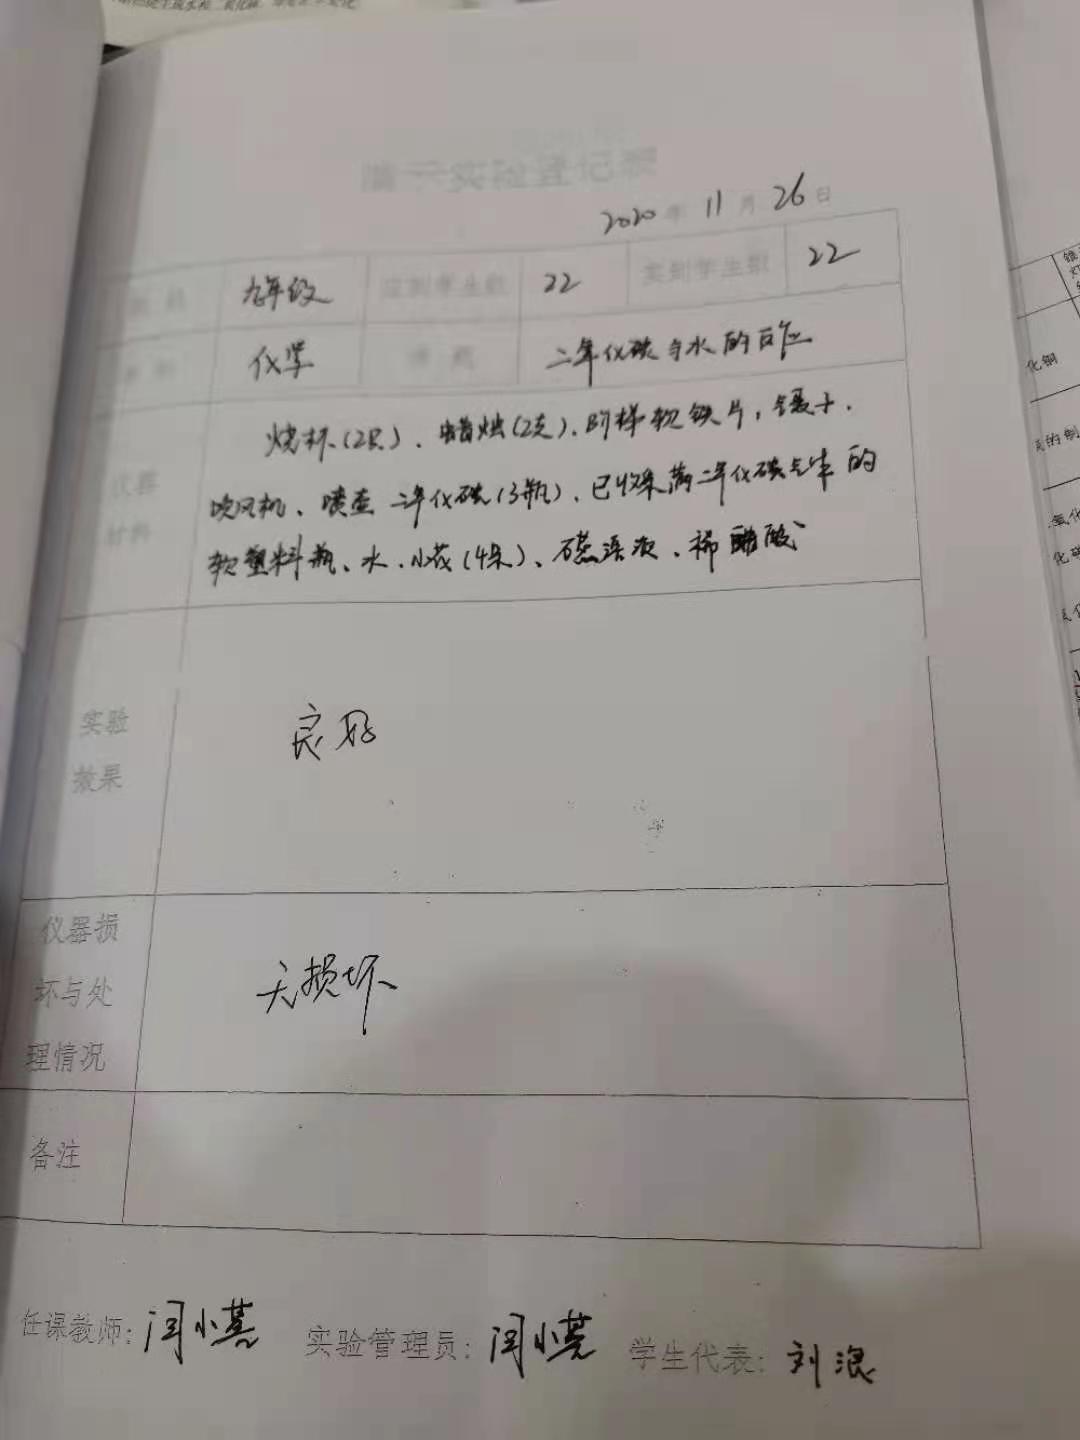 演示实验登记表
2020 年 11 月 26 日
九年级 应到学生数 22 实到学生数 22
化学 课题 二氧化碳与水的反应
仪器
材料
烧杯(2只)、蜡烛(2支)、阶梯软铁片,镊子、
吹风机、喷壶 二氧化碳(3瓶)、已收集满二氧化碳气体的
软塑料瓶、水、小花(4朵)、石蕊溶液、稀醋酸
实验
效果
良好
仪器损
坏与处
理情况
无损坏
备注
任课教师: 闫小 实验管理员: 闫小 学生代表: 刘浪
化铜
的制
氧化
化碳